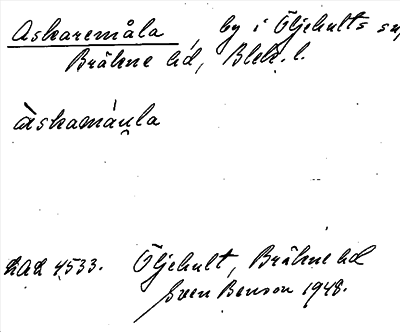 Askaremåla, by i Öljehults sn,
Bräkne hd, Blek. l.
àskamáu̯la
LAL 4533. Öljehult, Bräkne hd
Sven Benson 1948.